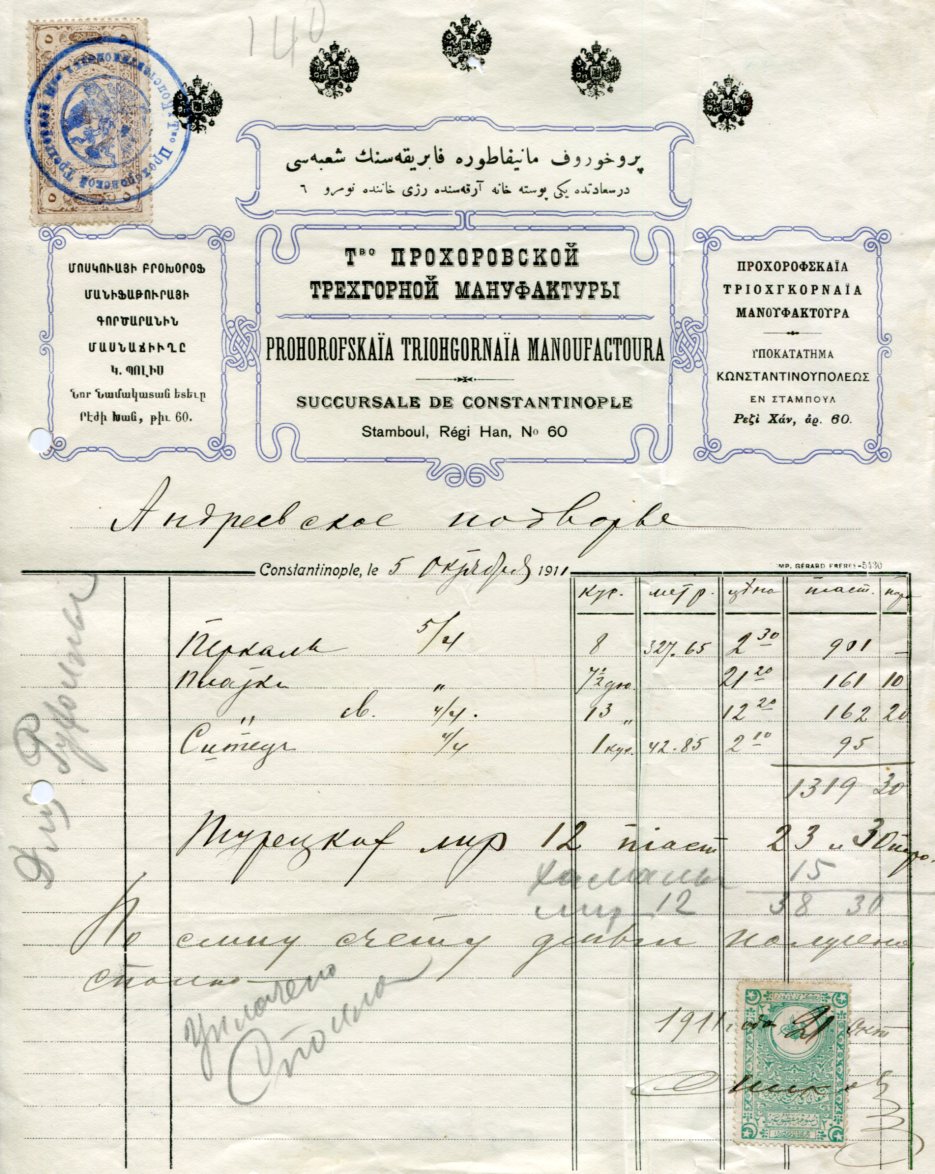 140
پروخوروف مانیفاطوره فابریقه‌سنك شعبه‌سی
درسعادتده یكی پوسته خانه آرقه‌سنده رژی خاننده نومرو ٦
Тво ПРОХОРОВСКОЙ
ТРЕХГОРНОЙ МАНУФАКТУРЫ
PROHOROFSKAÏA TRIOHGORNAÏA MANOUFACTOURA
SUCCURSALE DE CONSTANTINOPLE
Stamboul, Régi Han, No 60
ՄՈՍԿՈՒԱՅԻ ԲՐՕԽՕՐՕՖ
ՄԱՆԻՖԱԹՈՒՐԱՅԻ
ԳՈՐԾԱՐԱՆԻՆ
ՄԱՍՆԱՃԻՒՂԸ
Կ. ՊՈԼԻՍ
Նոր Նամակատան ետեւը
Րէժի Խան, թիւ 60.
ΠΡΟΧΟΡΟΦΣΚΑΪΑ
ΤΡΙΟΧΓΚΟΡΝΑΪΑ
ΜΑΝΟΥΦΑΚΤΟΥΡΑ
ΥΠΟΚΑΤΑΤΗΜΑ
ΚΩΝΣΤΑΝΤΙΝΟΥΠΟΛΕΩΣ
ΕΝ ΣΤΑΜΠΟΥΛ
Ρεζὶ Χάν, ἀρ. 60.
Андреевское подворье
Constantinople, le 5 Октября 1911
IMP. GÉRARD FRÈRES-5130
кус. метр. цѣна піаст. пар
Перкаль 5/4 8 327.65 2 30 901 –
" 21 20 161 10
" 4/4. 13 " 12 20 162 20
Ситецъ 4/4 1 кус. 42.85 2 10 95
1319 30
Турецкох лир 12 піаст 23 и 30 пар.
Хамалы 15
лир 12 38 30
По сему счету деньги получены
сполна
Уплачено
1911 года 21 Окт